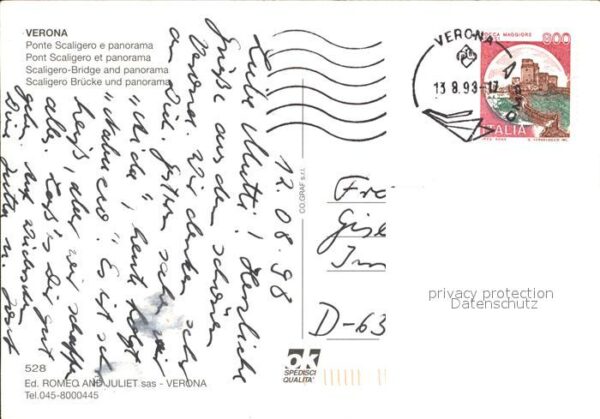 VERONA
Ponte Scaligero e panorama
Pont Scaligero et panorama
Scaligero-Bridge and panorama
Scaligero Brücke und panorama
ROCCA MAGGIORE
800
ITALIA
VERONA
13.8.98-17
12.08.98
Liebe Mutti! Herzliche
Grüße aus dem schönen
Verona. Wir denken sehr
an Dich. Gestern sahen wir
"Aida", heute folgt
"Nabucco". Es ist sehr
heiß, aber wir schaffen
alles. Laß es Dir gut
gehen. Auf Wiedersehen
Deine Jutta u. Josef
CO.GRAF s.r.l.
Fr
Gise
Im
D-63
privacy protection
Datenschutz
ok
SPEDISCI
QUALITA'
528
Ed. ROMEO AND JULIET sas - VERONA
Tel.045-8000445